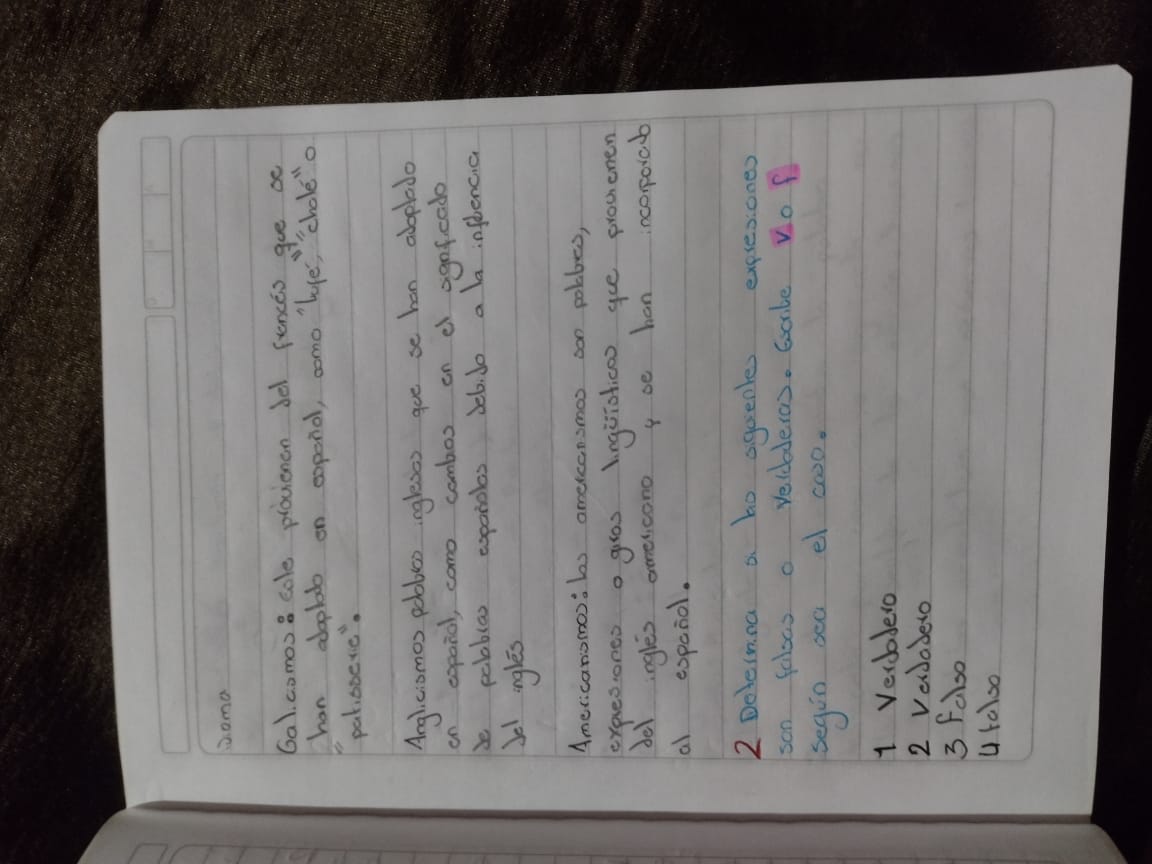 idioma
Galicismos: este provienen del francés que se
han adaptado en español, como "bufé", "chalé" o
"patisserie".
Anglicismos palabras inglesas que se han adaptado
en español, como cambios en el significado
de palabras españolas debido a la influencia
del inglés
Americanismos: los americanismos son palabras,
expresiones o giros lingüísticos que provienen
del inglés americano y se han incorporado
al español.
2 Determina si las siguientes expresiones
son falsas o verdaderas. Escribe v o f
según sea el caso.
1 Verdadero
2 verdadero
3 falso
4 falso